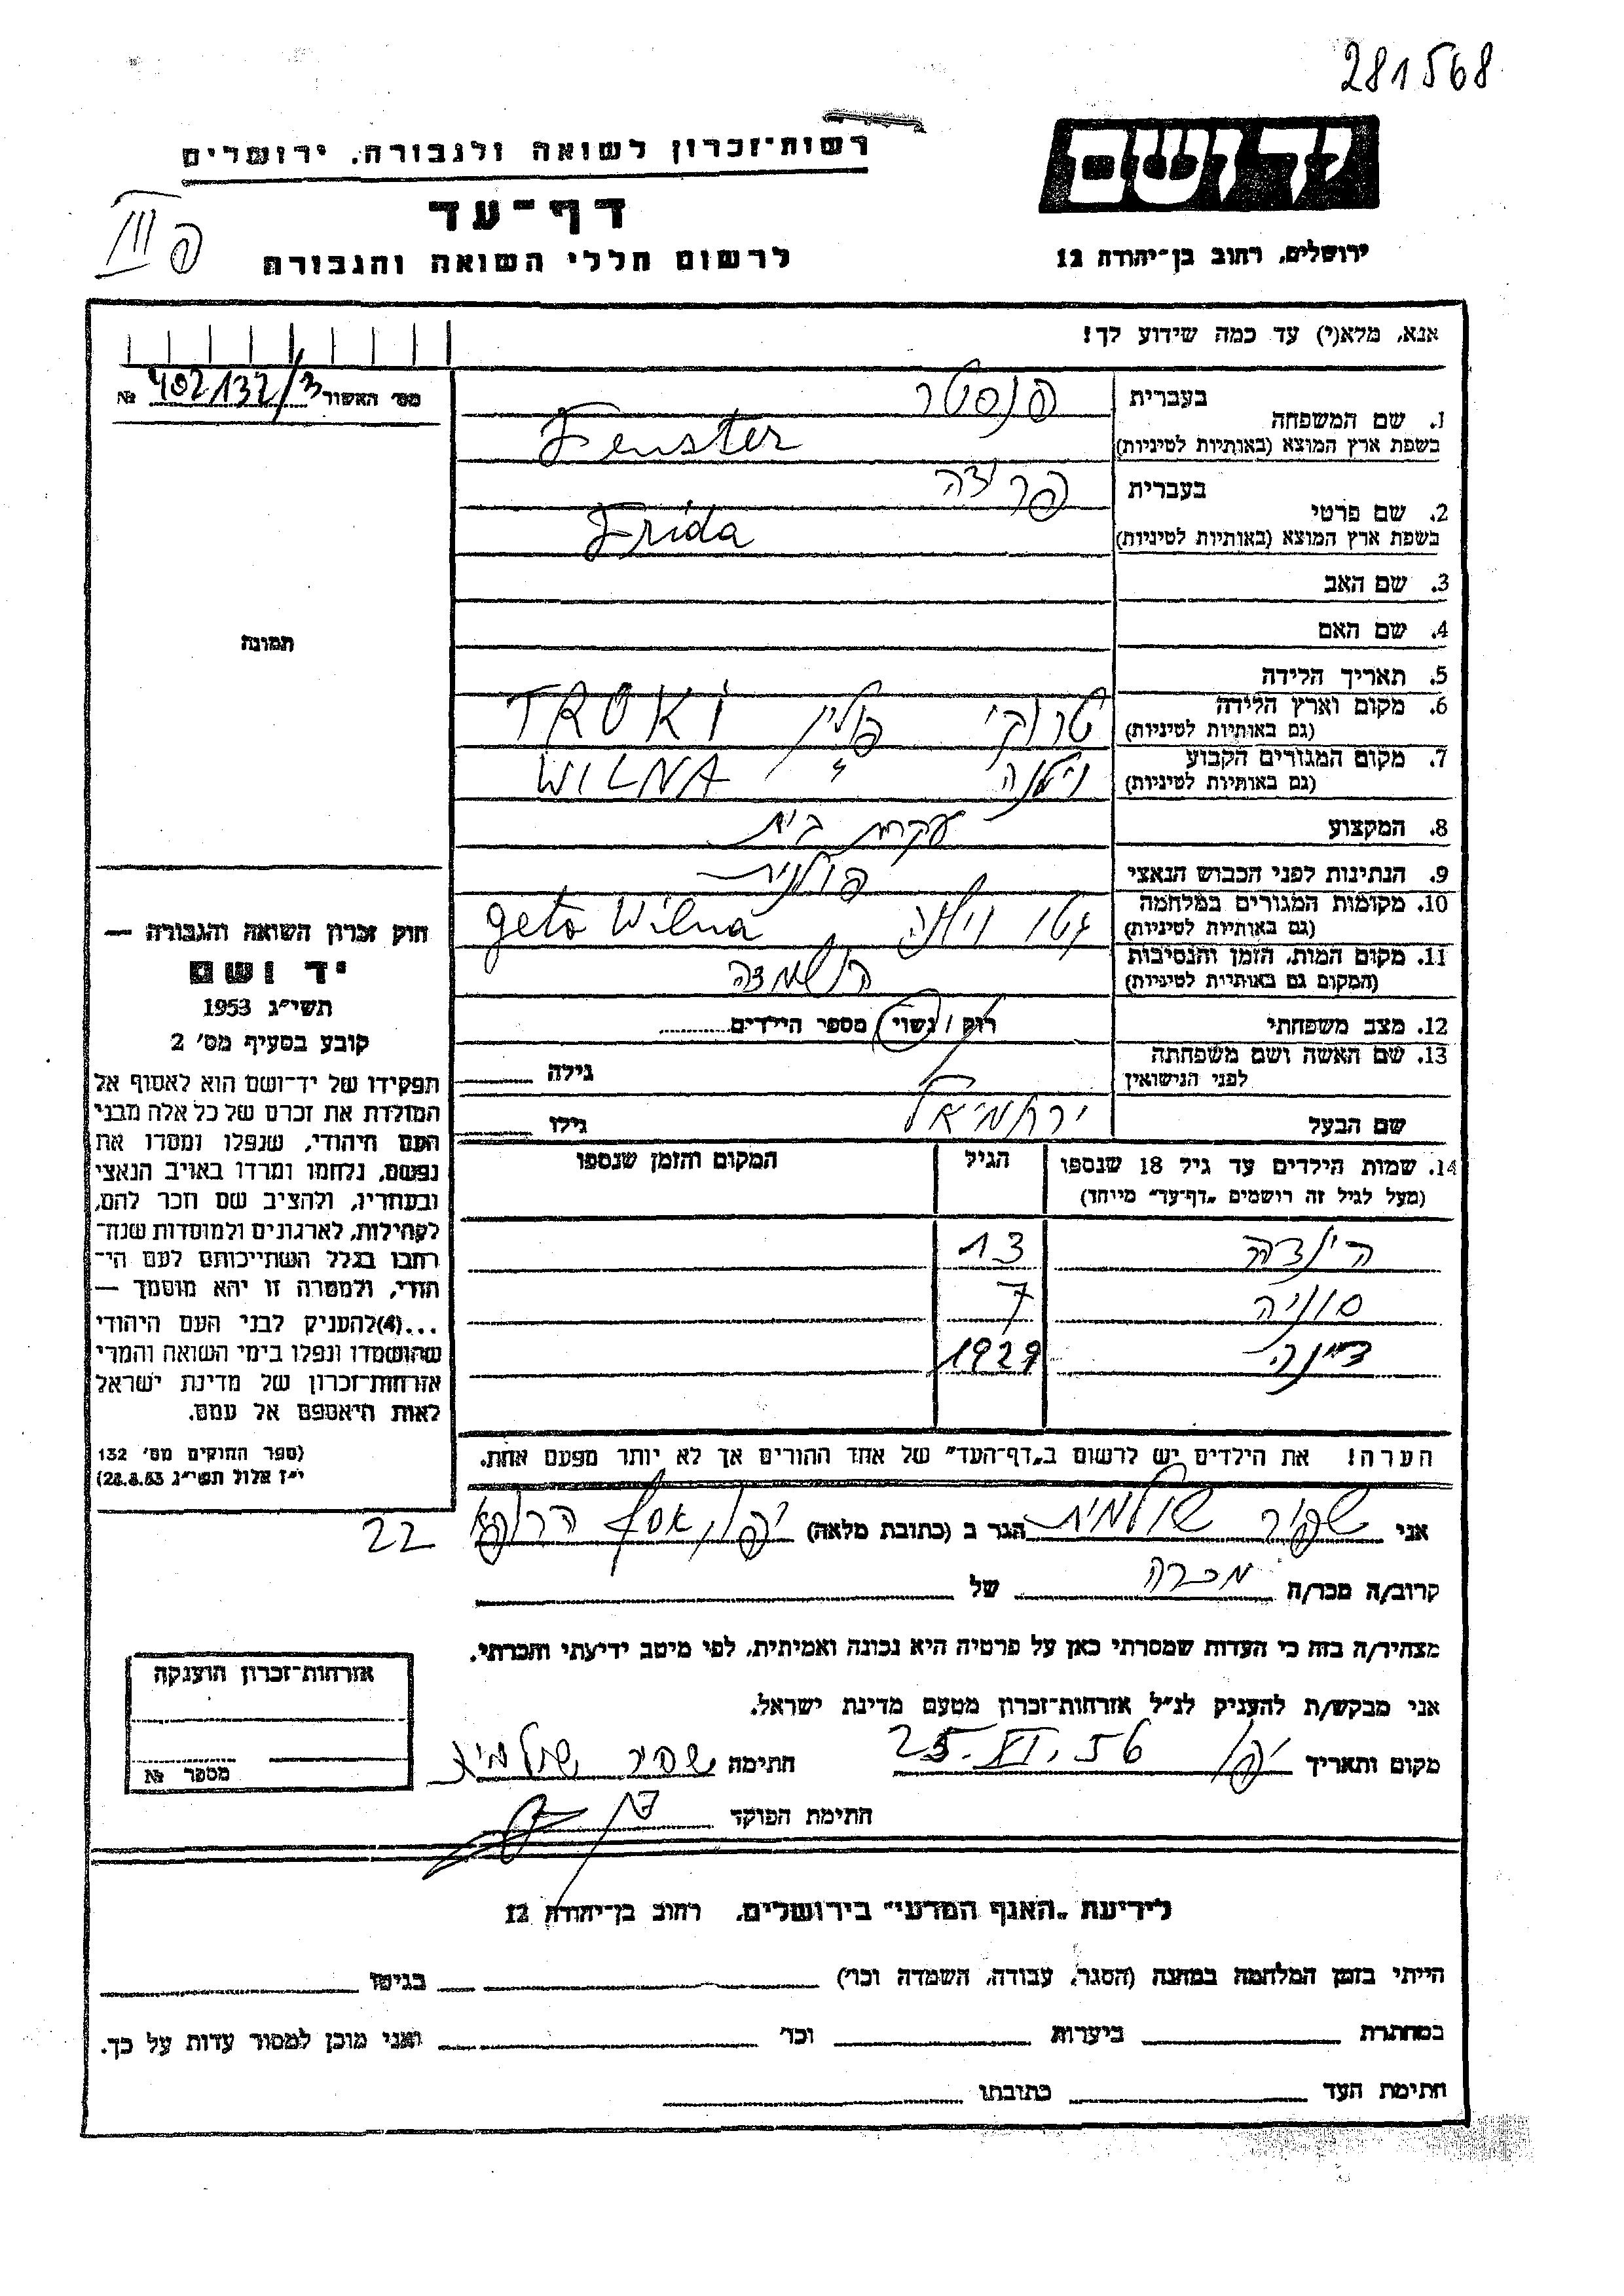 281568
יד ושם
ירושלים, רחוב בן־יהודה 12
רשות־זכרון לשואה ולגבורה, ירושלים
דף־עד
לרשום חללי השואה והגבורה
פ III
אנא, מלא(י) עד כמה שידוע לך!
מס׳ האשור 402132/3 №
1. שם המשפחה
בעברית פנסטר
בשפת ארץ המוצא (באותיות לטיניות) Fenster
2. שם פרטי
בעברית פרידה
בשפת ארץ המוצא (באותיות לטיניות) Frida
3. שם האב
4. שם האם
5. תאריך הלידה
6. מקום וארץ הלידה (גם באותיות לטיניות) טרוקי פולין TROKI
7. מקום המגורים הקבוע (גם באותיות לטיניות) וילנה " WILNA
8. המקצוע עקרת בית
9. הנתינות לפני הכבוש הנאצי פולנית
10. מקומות המגורים במלחמה (גם באותיות לטיניות) גטו וילנה geto Wilna
11. מקום המות, הזמן והנסיבות (המקום גם באותיות לטיניות) הושמדה
12. מצב משפחתי רוק / נשוי / מספר הילדים
13. שם האשה ושם משפחתה לפני הנישואין גילה
שם הבעל ירחמיאל גילו
14. שמות הילדים עד גיל 18 שנספו (מעל לגיל זה רושמים „דף־עד” מיוחד) הגיל המקום והזמן שנספו
הינדה 13
סוניה 7
דינה 1929
הערה! את הילדים יש לרשום ב„דף־העד” של אחד ההורים אך לא יותר מפעם אחת.
תמונה
חוק זכרון השואה והגבורה —
יד ושם
תשי״ג 1953
קובע בסעיף מס׳ 2
תפקידו של יד־ושם הוא לאסוף אל
המולדת את זכרם של כל אלה מבני
העם היהודי, שנפלו ומסרו את
נפשם, נלחמו ומרדו באויב הנאצי
ובעוזריו, ולהציב שם וזכר להם,
לקהילות, לארגונים ולמוסדות שנח־
רבו בגלל השתייכותם לעם הי־
הודי, ולמטרה זו יהא מוסמך —
...(4)להעניק לבני העם היהודי
שהושמדו ונפלו בימי השואה והמרי
אזרחות־זכרון של מדינת ישראל
לאות היאספם אל עמם.
(ספר החוקים מס׳ 132
י״ז אלול תשי״ג 28.8.53)
אני שפיר שולמית הגר ב (כתובת מלאה) יפו, אסף הרופא 22
קרוב/ה מכר/ה מכרה של
מצהיר/ה בזה כי העדות שמסרתי כאן על פרטיה היא נכונה ואמיתית, לפי מיטב ידיעתי והכרתי.
אני מבקש/ת להעניק לנ״ל אזרחות־זכרון מטעם מדינת ישראל.
מקום ותאריך יפו 25.XI.56 חתימה שפיר שולמית
חתימת הפוקד
אזרחות־זכרון הוענקה
מספר №
לידיעת „האגף המדעי” בירושלים, רחוב בן־יהודה 12
הייתי בזמן המלחמה במחנה (הסגר, עבודה, השמדה וכו׳) בגיטו
במחתרת ביערות וכו׳ ואני מוכן למסור עדות על כך.
חתימת העד כתובתו